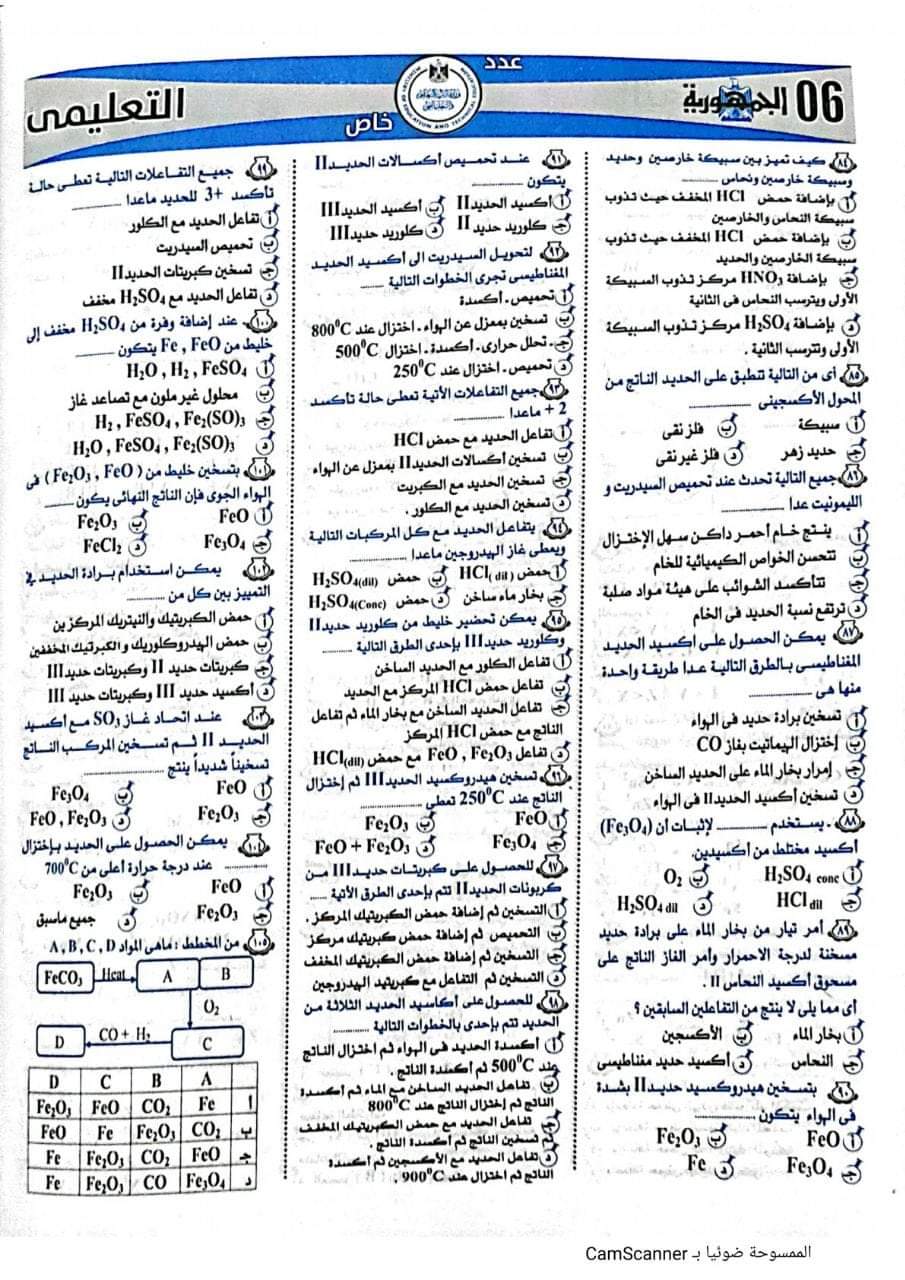 06 الجمهورية
عدد
خاص
التعليمى
٨٤ كيف تميز بين سبيكة خارصين وحديد
وسبيكة خارصين ونحاس ..........
أ بإضافة حمض HCl المخفف حيث تذوب
سبيكة النحاس والخارصين
ب بإضافة حمض HCl المخفف حيث تذوب
سبيكة الخارصين والحديد
جـ بإضافة HNO₃ مركز تذوب السبيكة
الأولى ويترسب النحاس فى الثانية
د بإضافة H₂SO₄ مركز تذوب السبيكة
الأولى وتترسب الثانية .
٨٥ أى من التالية تنطبق على الحديد الناتج من
المحول الأكسجينى ..........
أ سبيكة ب فلز نقى
جـ حديد زهر د فلز غير نقى
٨٦ جميع التالية تحدث عند تحميص السيدريت و
الليمونيت عدا ..........
أ ينتج خام أحمر داكن سهل الإختزال
ب تتحسن الخواص الكيميائية للخام
جـ تتأكسد الشوائب على هيئة مواد صلبة
د ترتفع نسبة الحديد فى الخام
٨٧ يمكن الحصول على أكسيد الحديد
المغناطيسى بالطرق التالية عدا طريقة واحدة
منها هى ..........
أ تسخين برادة حديد فى الهواء
ب إختزال الهيماتيت بغاز CO
جـ إمرار بخار الماء على الحديد الساخن
د تسخين أكسيد الحديدII فى الهواء
٨٨ . يستخدم .......... لإثبات أن (Fe₃O₄)
أكسيد مختلط من أكسيدين.
أ H₂SO₄ conc ب O₂
جـ HCl dil د H₂SO₄ dil
٨٩ أمر تيار من بخار الماء على برادة حديد
مسخنة لدرجة الاحمرار وأمر الغاز الناتج على
مسحوق أكسيد النحاس II .
أى مما يلى لا ينتج من التفاعلين السابقين ؟
أ بخار الماء ب الأكسجين
جـ النحاس د أكسيد حديد مغناطيسى
٩٠ بتسخين هيدروكسيد حديدII بشدة
فى الهواء يتكون ..........
أ FeO ب Fe₂O₃
جـ Fe₃O₄ د Fe
٩١ عند تحميص أكسالات الحديدII
يتكون ..........
أ أكسيد الحديدII ب أكسيد الحديدIII
جـ كلوريد حديد II د كلوريد حديدIII
٩٢ لتحويل السيدريت الى أكسيد الحديد
المغناطيسى تجرى الخطوات التالية ......
أ تحميص . أكسدة
ب تسخين بمعزل عن الهواء . اختزال عند 800⁰C
جـ تحلل حرارى . أكسدة . اختزال 500⁰C
د تحميص . اختزال عند 250⁰C
٩٣ جميع التفاعلات الأتية تعطى حالة تأكسد
2 + ماعدا ..........
أ تفاعل الحديد مع حمض HCl
ب تسخين أكسالات الحديدII بمعزل عن الهواء
جـ تسخين الحديد مع الكبريت
د تسخين الحديد مع الكلور .
٩٤ يتفاعل الحديد مع كل المركبات التالية
ويعطى غاز الهيدروجين ماعدا ..........
أ حمض HCl(dil) ب حمض H₂SO₄(dil)
جـ بخار ماء ساخن د حمض H₂SO₄(Conc)
٩٥ يمكن تحضير خليط من كلوريد حديدII
وكلوريد حديدIII بإحدى الطرق التالية ......
أ تفاعل الكلور مع الحديد الساخن
ب تفاعل حمض HCl المركز مع الحديد
جـ تفاعل الحديد الساخن مع بخار الماء ثم تفاعل
الناتج مع حمض HCl المركز
د تفاعل FeO , Fe₂O₃ مع حمض HCl(dil)
٩٦ تسخين هيدروكسيد الحديدIII ثم إختزال
الناتج عند 250⁰C تعطى ..........
أ FeO ب Fe₂O₃
جـ Fe₃O₄ د FeO + Fe₂O₃
٩٧ للحصول على كبريتات حديدIII من
كربونات الحديدII تتم بإحدى الطرق الأتية ......
أ التسخين ثم إضافة حمض الكبريتيك المركز .
ب التحميص ثم إضافة حمض الكبريتيك مركز
جـ التسخين ثم إضافة حمض الكبريتيك المخفف
د التسخين ثم التفاعل مع كبريتيد الهيدروجين
٩٨ للحصول على أكاسيد الحديد الثلاثة من
الحديد تتم بإحدى بالخطوات التالية ..........
أ أكسدة الحديد فى الهواء ثم اختزال الناتج
عند 500⁰C ثم أكسدة الناتج .
ب تفاعل الحديد الساخن مع الماء ثم أكسدة
الناتج ثم إختزال الناتج عند 800⁰C
جـ تفاعل الحديد مع حمض الكبريتيك المخفف
ثم تسخين الناتج ثم أكسدة الناتج .
د تفاعل الحديد مع الأكسجين ثم أكسدة
الناتج ثم اختزال عند 900⁰C .
٩٩ جميع التفاعلات التالية تعطى حالة
تأكسد +3 للحديد ماعدا ..........
أ تفاعل الحديد مع الكلور
ب تحميص السيدريت
جـ تسخين كبريتات الحديدII
د تفاعل الحديد مع H₂SO₄ مخفف
١٠٠ عند إضافة وفرة من H₂SO₄ مخفف إلى
خليط من Fe , FeO يتكون ..........
أ H₂O , H₂ , FeSO₄
ب محلول غير ملون مع تصاعد غاز
جـ H₂ , FeSO₄ , Fe₂(SO)₃
د H₂O , FeSO₄ , Fe₂(SO)₃
١٠١ بتسخين خليط من ( Fe₂O₃ , FeO ) فى
الهواء الجوى فإن الناتج النهائى يكون ......
أ FeO ب Fe₂O₃
جـ Fe₃O₄ د FeCl₂
١٠٢ يمكن استخدام برادة الحديد فى
التمييز بين كل من ..........
أ حمض الكبريتيك والنيتريك المركزين
ب حمض الهيدروكلوريك والكبرتيك المخففين
جـ كبريتات حديد II وكبريتات حديد III
د أكسيد حديد III وكبريتات حديد III
١٠٣ عند اتحاد غاز SO₃ مع أكسيد
الحديد II ثم تسخين المركب الناتج
تسخيناً شديداً ينتج ..........
أ FeO ب Fe₃O₄
جـ Fe₂O₃ د FeO , Fe₂O₃
١٠٤ يمكن الحصول على الحديد بإختزال
...... عند درجة حرارة أعلى من 700⁰C
أ FeO ب Fe₂O₃
جـ Fe₂O₃ د جميع ماسبق
١٠٥ من المخطط : ماهى المواد A , B , C , D
FeCO₃ Heat A B
O₂
D CO + H₂ C
D C B A
Fe₂O₃ FeO CO₂ Fe أ
FeO Fe Fe₂O₃ CO₂ ب
Fe Fe₂O₃ CO₂ FeO جـ
Fe Fe₂O₃ CO Fe₃O₄ د
الممسوحة ضوئيا بـ CamScanner